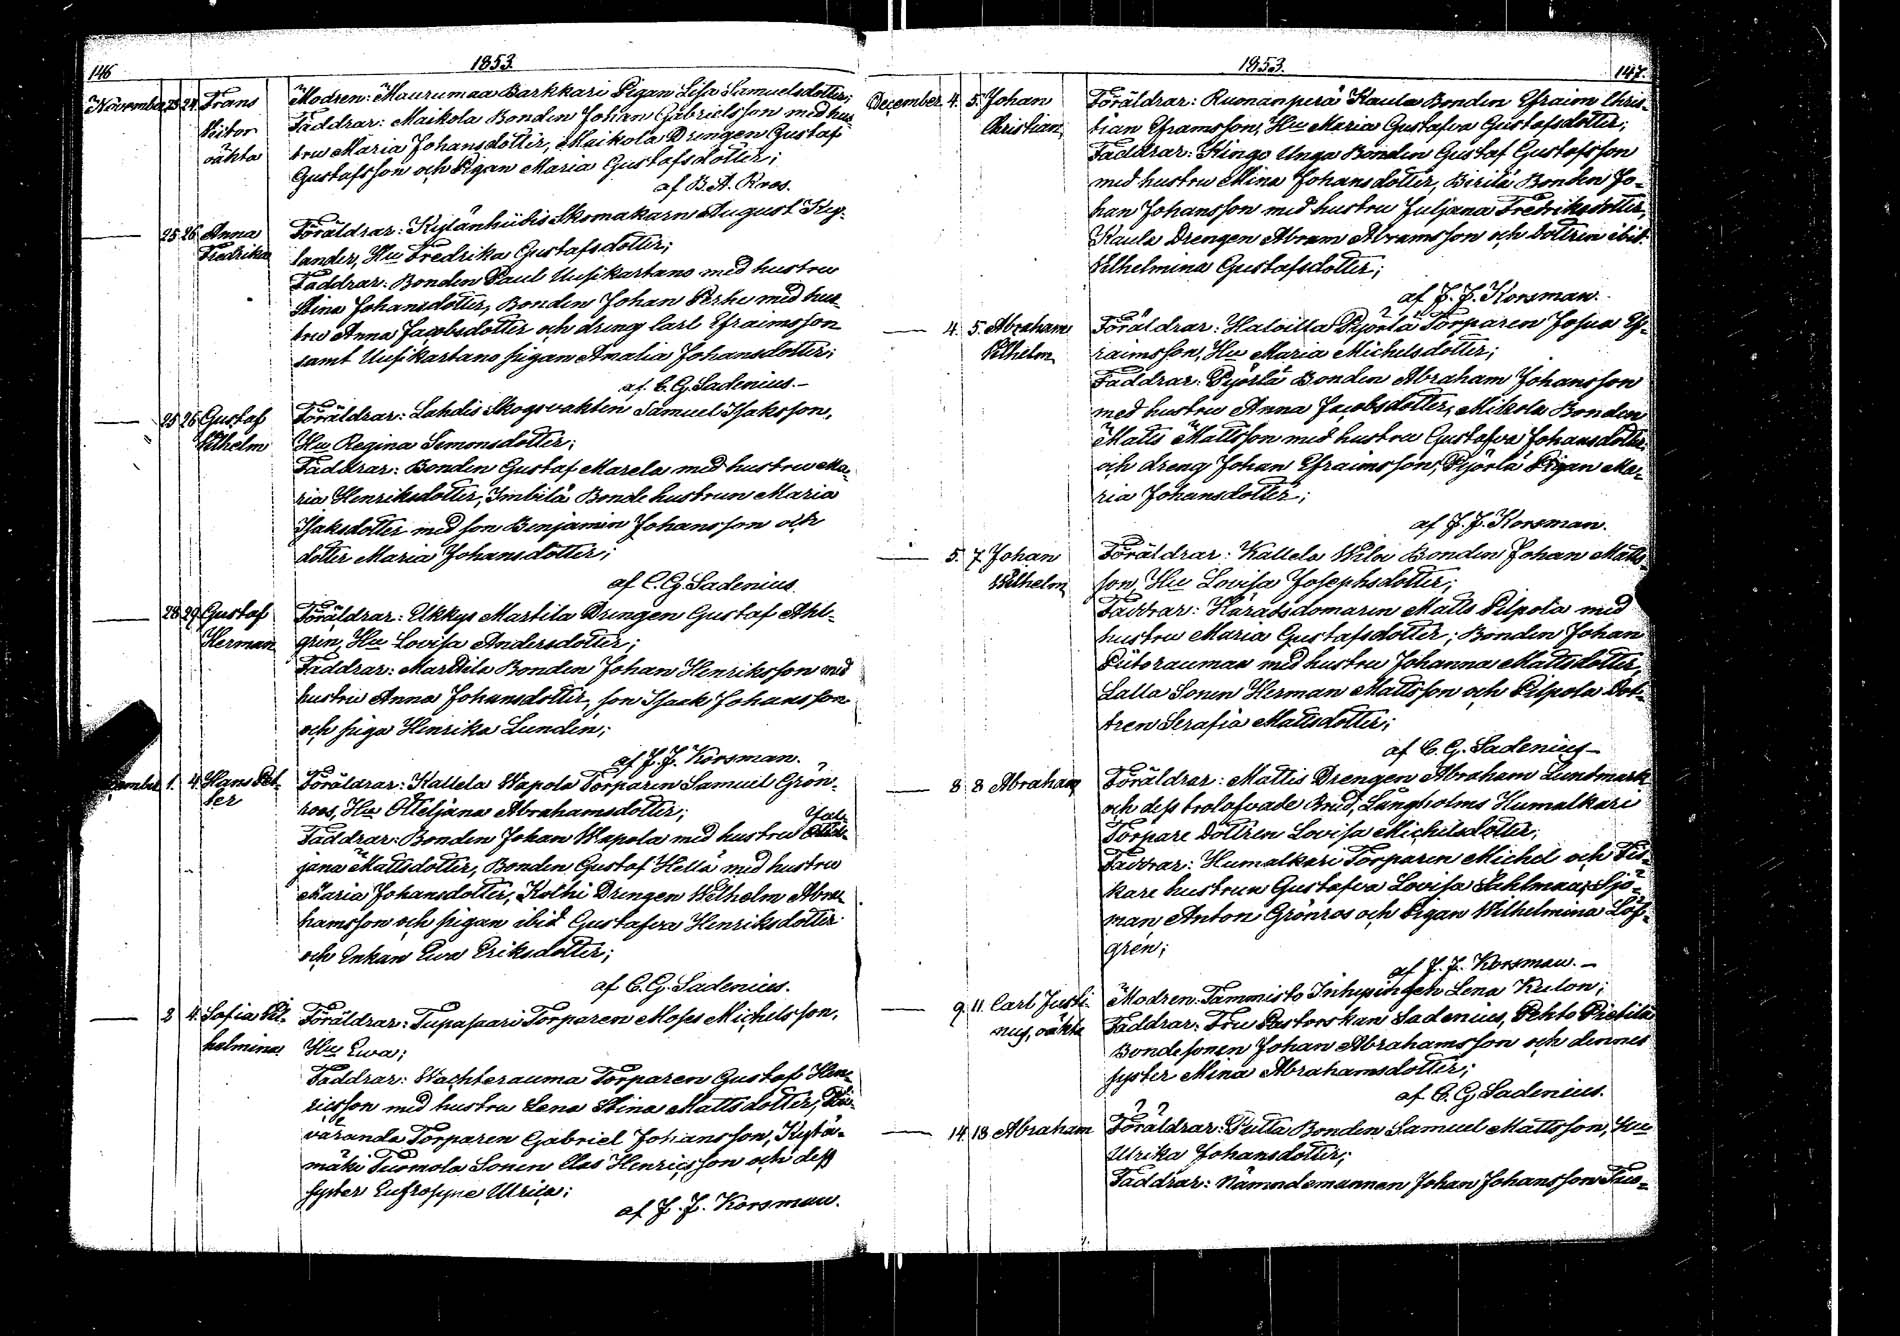 146
1853.
November 23 24 Frans Modren: Maurumaa Barkkari Pigan Lisa Samuelsdotter;
Victor Faddrar: Maikola Bonden Johan Gabrielsson med hus-
oäkta tru Maria Johansdotter, Maikola Drengen Gustaf
Gustafsson och Pigan Maria Gustafsdotter;
af B. A. Roos.
25 26 Anna Föräldrar: Kylänhiibis Skomakarn August Kyl-
Fredrika lander, Hu Fredrika Gustafsdotter;
Faddrar: Bonden Paul Uusikartano med hustru
Stina Johansdotter, Bonden Johan Perhe med hus-
tru Anna Jacobsdotter och dreng Carl Efraimsson
samt Uusikartano pigan Amalia Johansdotter;
af C. G. Sadenius.-
25 26 Gustaf Föräldrar: Lahdis Skogsvakten Samuel Isaksson,
Vilhelm Hu Regina Simonsdotter;
Faddrar: Bonden Gustaf Marela med hustru Ma-
ria Henriksdotter, Imbilä Bonde hustrun Maria
Isaksdotter med son Benjamin Johansson och
dotter Maria Johansdotter;
af C. G. Sadenius.
28 29 Gustaf Föräldrar: Ukkys Martila Drengen Gustaf Ahl-
Herman grén, Hu Lovisa Andersdotter;
Faddrar: Marttila Bonden Johan Henriksson med
hustru Anna Johansdotter, son Isaak Johansson
och piga Henrika Lundén;
af J. J. Korsman.
1. 4. Hans Pet- Föräldrar: Kallela Wapola Torparen Samuel Grön-
ter roos, Hu Otteljana Abrahamsdotter;
Faddrar: Bonden Johan Wapola med hustru Jul-
jana Mattsdotter, Bonden Gustaf Hellä med hustru
Maria Johansdotter, Kolhi Drengen Wilhelm Abra-
hamsson och pigan ibid Gustafva Henriksdotter
och Enkan Ewa Eriksdotter;
af C. G. Sadenius.
2 4. Sofia Vil- Föräldrar: Tupasaari Torparen Moses Michelsson,
helmina Hu Ewa;
Faddrar: Wachterauma Torparen Gustaf Hen-
ricsson med hustru Lena Stina Mattsdotter,
varande Torparen Gabriel Johansson, Kylä-
mäki Tuomola Sonen Elas Henricsson och dess
syster Eufrosyne Ulrica;
af J. J. Korsman.
1853.
147.
December. 4. 5. Johan Föräldrar: Ruonanperä Kaula Bonden Efraim Chris-
Christian, tian Eframsson, Hu Maria Gustafva Gustafsdotter;
Faddrar: Hingo Unga Bonden Gustaf Gustafsson
med hustru Mina Johansdotter, Birilä Bonden Jo-
han Johansson med hustru Juljana Fredriksdotter,
Kaula Drengen Abram Abramsson och Dottren ibid.
Vilhelmina Gustafsdotter;
af J. J. Korsman.
4. 5. Abraham Föräldrar: Haloilla Pyörlä Torparen Josua Ef-
Vilhelm raimsson, Hu Maria Michelsdotter;
Faddrar: Pyörlä Bonden Abraham Johansson
med hustru Anna Jacobsdotter, Mikola Bonden
Matts Mattsson med hustru Gustafva Johansdotter,
och dreng Johan Efraimsson, Pyörlä Pigan Ma-
ria Johansdotter;
af J. J. Korsman.
5. 7. Johan Föräldrar: Kallela Wilo Bonden Johan Matts-
Vilhelm son, Hu Lovisa Josephsdotter;
Faddrar: Häradsdomaren Matts Pilpola med
hustru Maria Gustafsdotter; Bonden Johan
Piiterauman med hustru Johanna Mattsdotter,
Lalla Sonen Herman Mattsson och Pilpola Dot-
tren Serafia Mattsdotter;
af C. G. Sadenius-
8 8 Abraham Föräldrar: Mattis Drengen Abraham Lundmark
och dess trolofvade Brud, Långholms Humalkari
Torpare Dottren Lovisa Michelsdotter,
Faddrar: Humalkari Torparen Michel och Fis-
kare hustrun Gustafva Lovisa Sahlman, Sjö-
man Anton Grönros och Pigan Wilhelmina Löf-
grén;
af J. J. Korsman.-
9. 11. Carl Justi- Modren: Tammisto Inhysingen Lena Kulon;
nus, oäkta Faddrar: Fru Pastorskan Sadenius, Pehto Pietilä
Bondesonen Johan Abrahamsson och dennes
syster Mina Abrahamsdotter;
af C. G. Sadenius.
14. 18 Abraham Föräldrar: Putta Bonden Samuel Mattsson, Hu
Ulrika Johansdotter;
Faddrar: Nämndemannen Johan Johansson